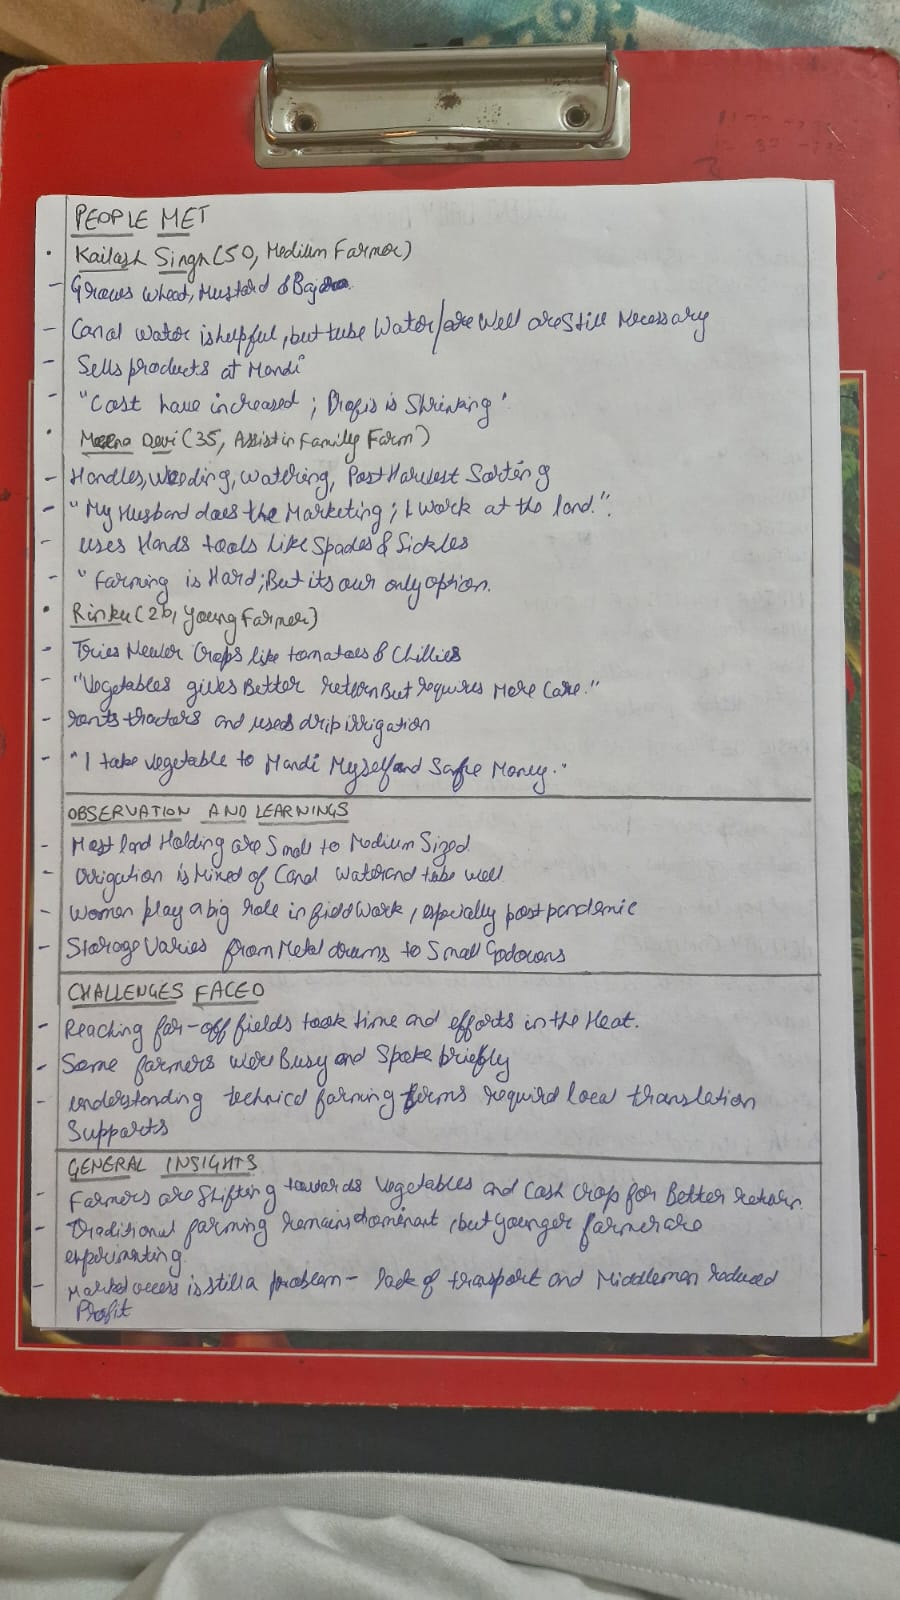 PEOPLE MET
· Kailash Singh (50, Medium Farmer)
- Grows Wheat, Mustard & Bajra
- Canal Water is helpful, but tube Water/are Well are Still Necessary
- Sells products at Mandi
- "Cost have increased; Profis is Shrinking'
· Meena Devi (35, Assist in Family Farm)
- Handles, Weeding, Watering, Post Harvest Sorting
- "My Husband does the Marketing; I work at the land."
- uses Hands tools like Spades & Sickles
- "Farming is Hard; But its our only option.
· Rinku (26, Young Farmer)
- Tries Newer Crops like tomatoes & Chillies
- "Vegetables gives Better return But requires More Care."
- rents tractors and uses drip irrigation
- "I take vegetable to Mandi Myself and Safe Money."
OBSERVATION AND LEARNINGS
- Most land Holding are Small to Medium Sized
- Irrigation is Mixed of Canal Water and tube well
- Women play a big role in field Work, especially post pandemic
- Storage Varies from Metal drums to Small Godowns
CHALLENGES FACED
- Reaching far-off fields took time and efforts in the Heat.
- Some farmers were Busy and Spoke briefly
- understanding technical farming terms required local translation
Supports
GENERAL INSIGHTS
- Farmers are Shifting towards Vegetables and Cash Crop for Better return
- Traditional farming remains dominant, but younger farmer are
experimenting
- Market access is still a problem - lack of transport and Middleman reduced
Profit